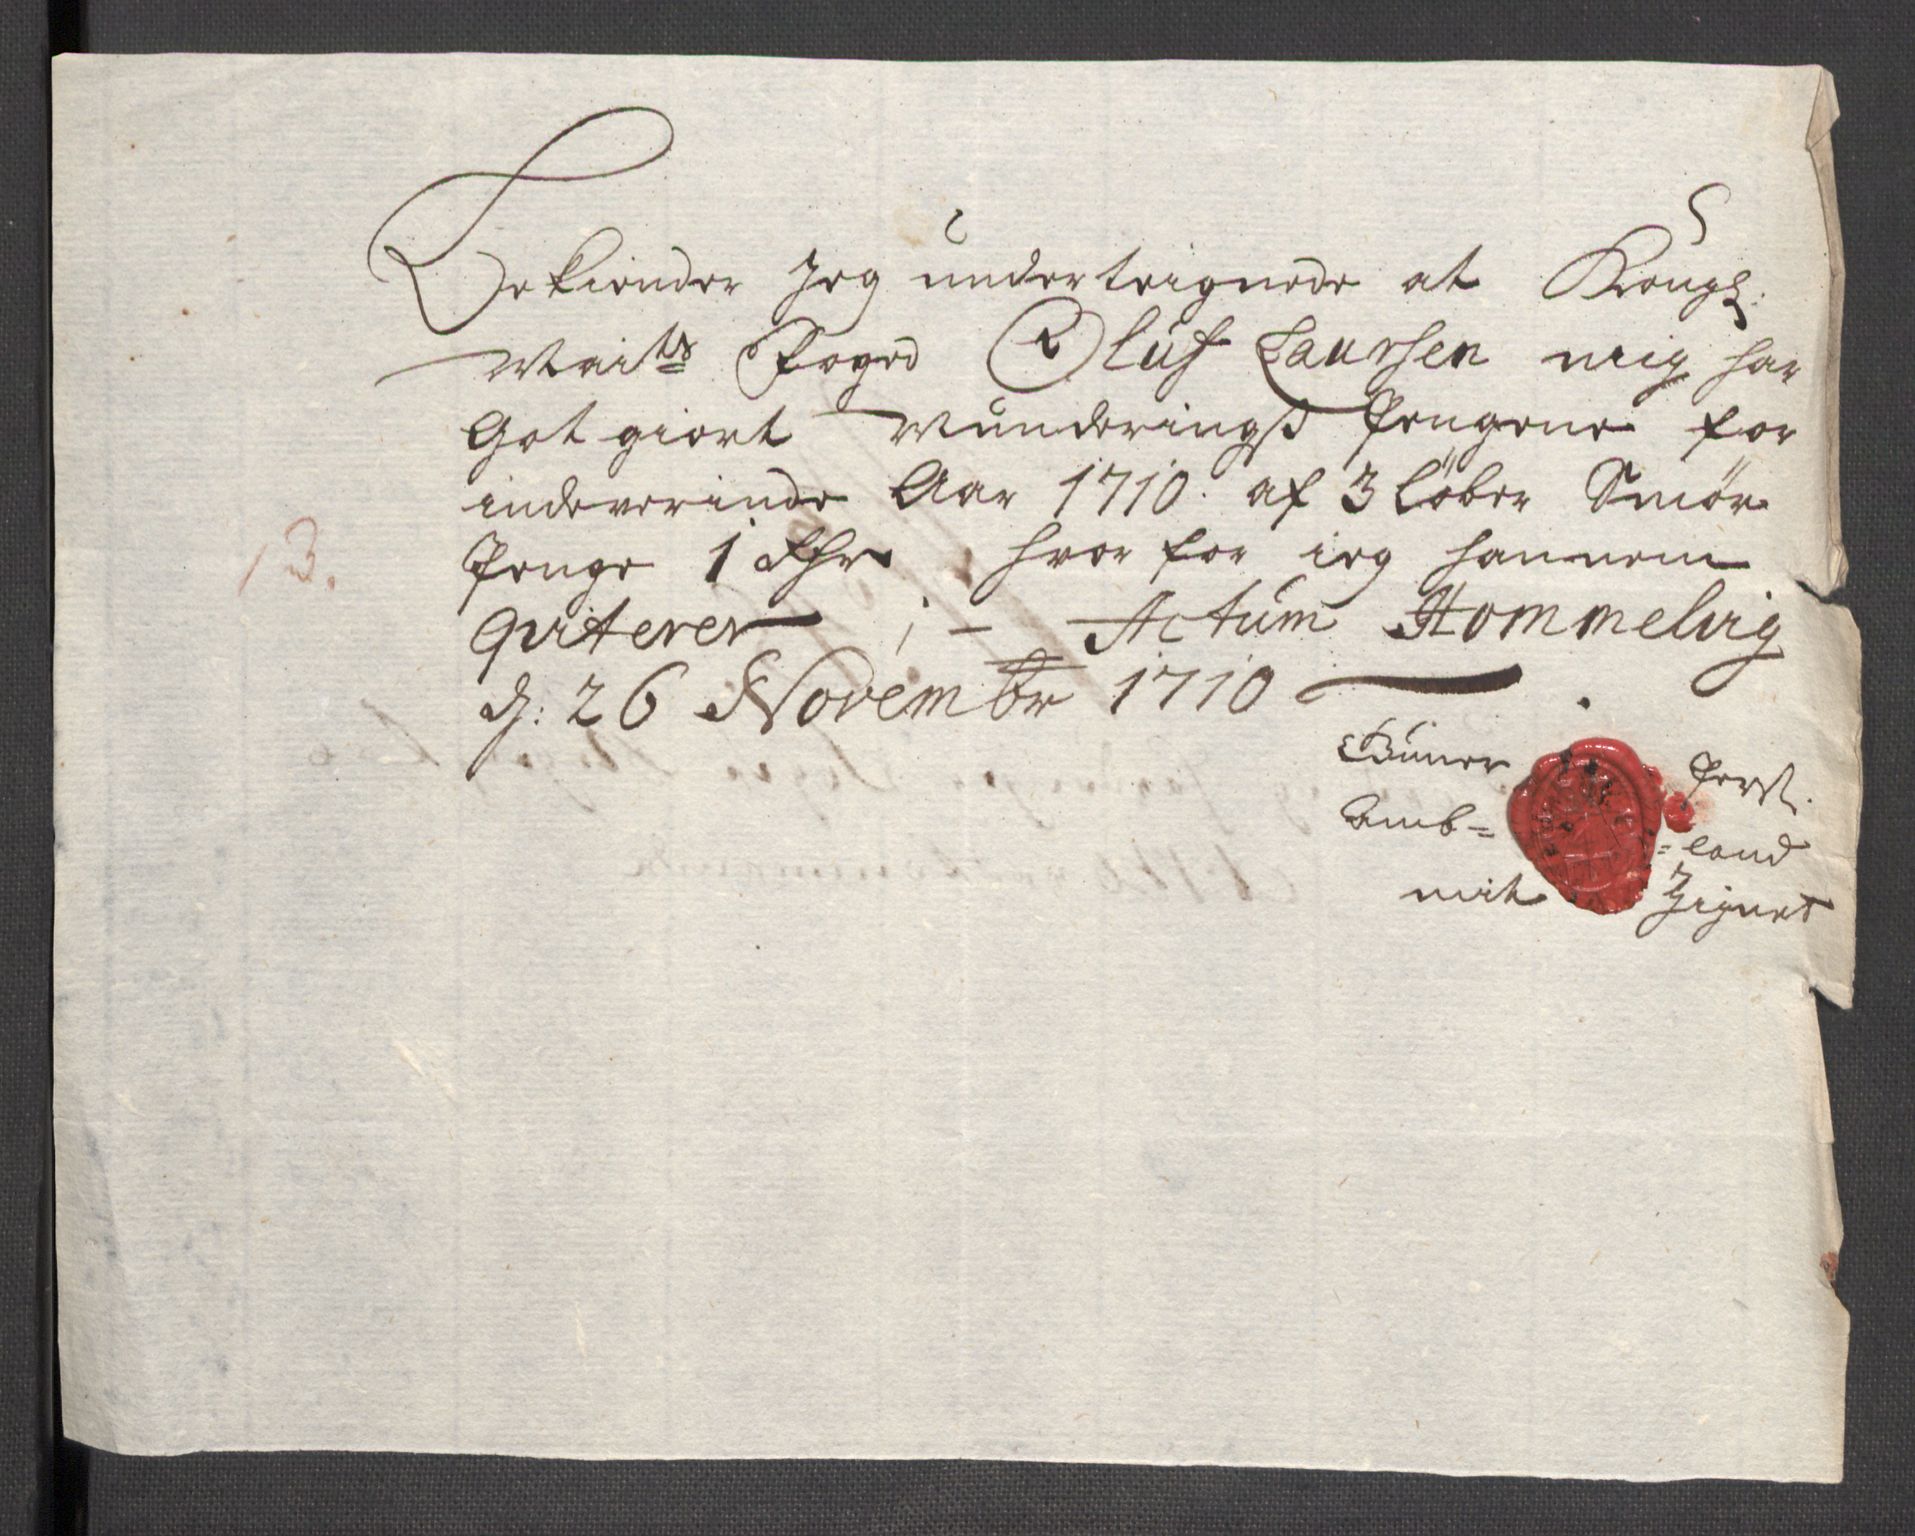 Bekiender Jeg underteignede at Kongl:
Maits Foged Oluf Laursen mig har
Got giort Munderingß Pengene for
indeverinde Aar 1710. af 3 Löber Smör
Penge 1 Rhr hvor for ieg hannem
qviterer ; - Actum Hommelvig
d: 26 Novembr 1710
13.
Guner Perst.
Amb= =land
mit Zignet